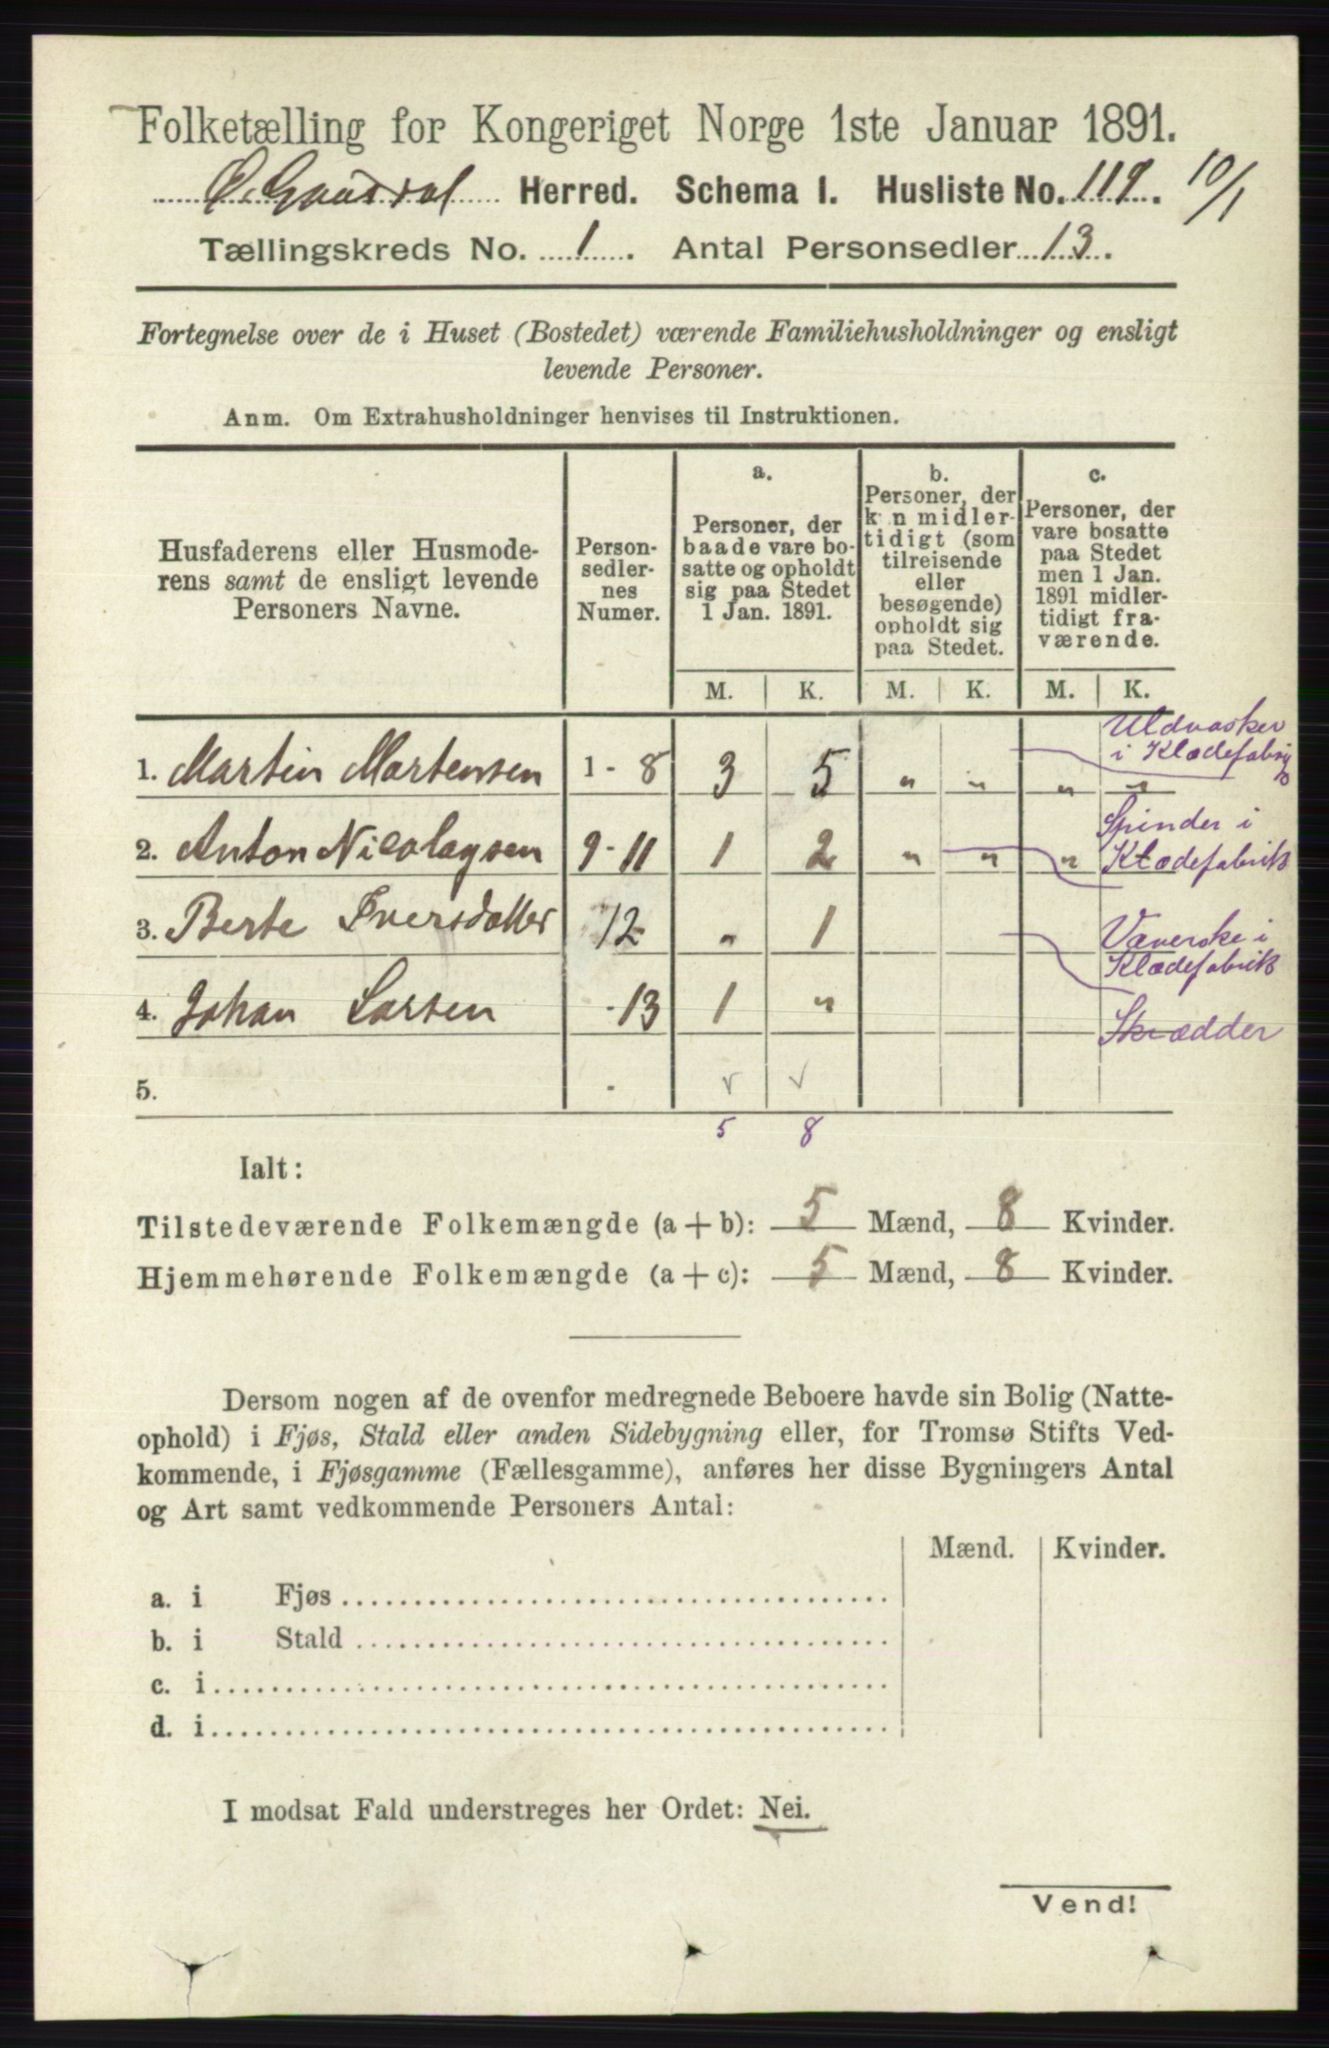 Folketælling for Kongeriget Norge 1ste Januar 1891.
Ø. Gausdal Herred. Schema I. Husliste No. 119. 10/1
Tællingskreds No. 1. Antal Personsedler 13.
Fortegnelse over de i Huset (Bostedet) værende Familiehusholdninger og ensligt
levende Personer.
Anm. Om Extrahusholdninger henvises til Instruktionen.
Husfaderens eller Husmode-
rens samt de ensligt levende
Personers Navne.
Person-
sedler-
nes
Numer.
a.
Personer, der
baade vare bo-
satte og opholdt
sig paa Stedet
1 Jan. 1891.
b.
Personer, der
kun midler-
tidigt (som
tilreisende
eller
besøgende)
opholdt sig
paa Stedet.
c.
Personer, der
vare bosatte
paa Stedet
men 1 Jan.
1891 midler-
tidigt fra-
værende.
M. K. M. K. M. K.
Uldvasker
i Klædefabrik
1. Martin Mortensen 1-8 3 5 " " " "
Spinder i
Klædefabrik
2. Anton Nicolaysen 9-11 1 2 " " "
3. Berte Iversdatter 12 " 1
Væverske i
Klædefabrik
4. Johan Larsen -13 1 "
Skrædder
5. - v v
5 8
Ialt:
Tilstedeværende Folkemængde (a + b): 5 Mænd, 8 Kvinder.
Hjemmehørende Folkemængde (a + c): 5 Mænd, 8 Kvinder.
Dersom nogen af de ovenfor medregnede Beboere havde sin Bolig (Natte-
ophold) i Fjøs, Stald eller anden Sidebygning eller, for Tromsø Stifts Ved-
kommende, i Fjøsgamme (Fællesgamme), anføres her disse Bygningers Antal
og Art samt vedkommende Personers Antal:
Mænd. Kvinder.
a. i Fjøs
b. i Stald
c. i
d. i
I modsat Fald understreges her Ordet: Nei.
Vend!